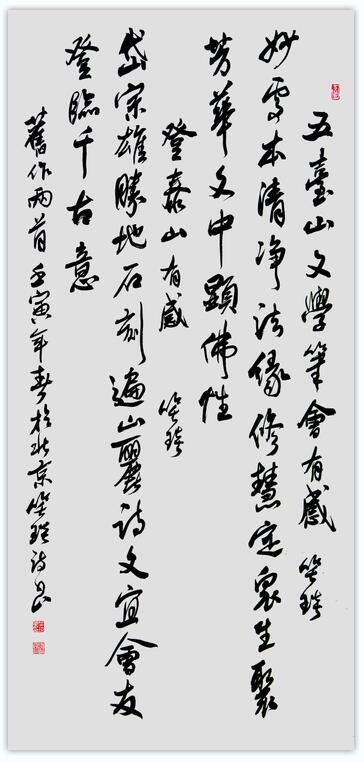 五臺山文學筆會有感
妙本清净法緣修慧定衆生聚
芳華文中顯佛性
登泰山有感
岱宗雄勝地石刻遍山麗詩文宜會友
登臨千古意
舊作兩首壬寅年春於北京